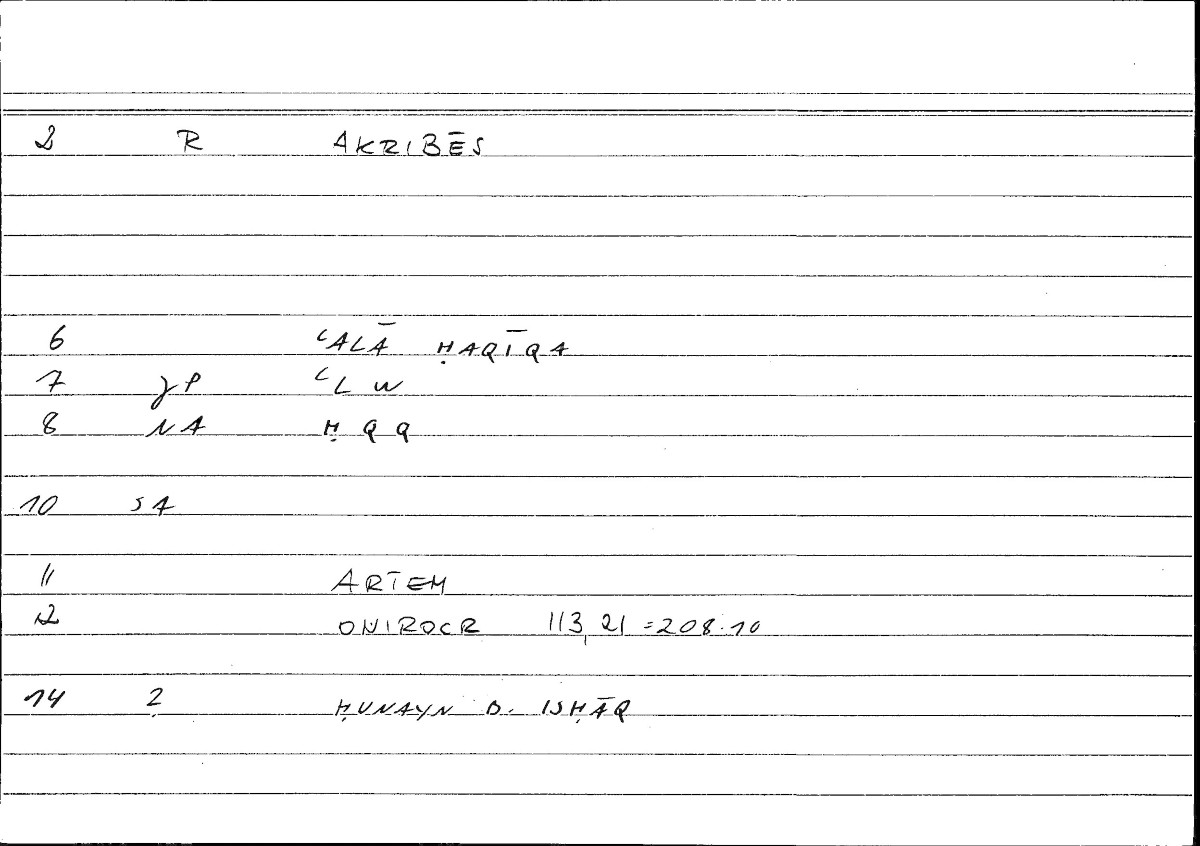 2 R AKRIBĒS
6 ʿALĀ ḤAQĪQA
7 γP ʿL W
8 NA Ḥ Q Q
10 SA
11 ARTEM
2 ONIROCR 113,21 =208.10
14 2 ḤUNAYN B. ISḤĀQ